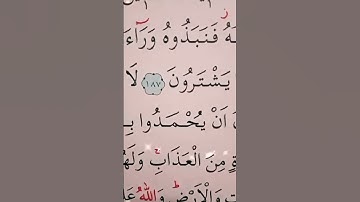 ـهُ فَنَبَذُوهُ وَرَٓاءَ
يَشْتَرُونَ ﴿١٨٧﴾ لَا
اَنْ يُحْمَدُوا بِـ
ـةٍ مِنَ الْعَذَابِۚ وَلَهُـ
ـتِ وَالْاَرْضِۜ وَاللّٰهُ عَلـ